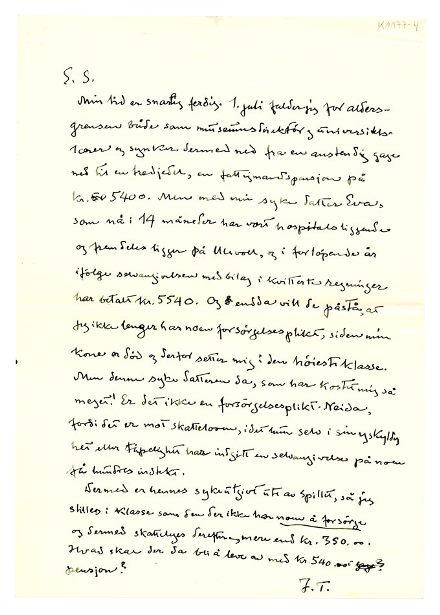 K1177-4
S. S.
Min tid er snarlig ferdig. 1. juli falder jeg for alders-
grensen både som museumsdirektör og universitets-
lærer og synker dermed ned fra en anstendig gage
ned til en tredjedel, en fattigmandspension på
kr. 5400. Men med min syke datter Eva,
som nå i 14 måneder har vært hospitalsliggende
og fremdeles ligger på Ullevoll, og i forlöpende år
ifölge selvangivelsen med bilag i kvitterte regninger
har betalt kr. 5540. Og endda vill de påstå, at
jeg ikke lenger har noen forsörgelsesplikt, siden min
kone er död og derfor setter mig i den höieste klasse.
Men denne syke datteren da, som har kostet mig så
meget! Er det ikke en forsörgelsesplikt. Neida,
fordi det er mot skatteloven, idet hun selv i sin uskyldig
het eller har indgitt en selvangivelse på noen
få hundre indtekt.
Dermed er hennes sykeutgivt ute av spillet, så jeg
stilles i klasse som den der ikke har noen å forsörge
og dermed skattelegges derefter, mere end kr. 350.00.
Hvad skal der da bli å leve av med kr 540
pensjon?
J. T.